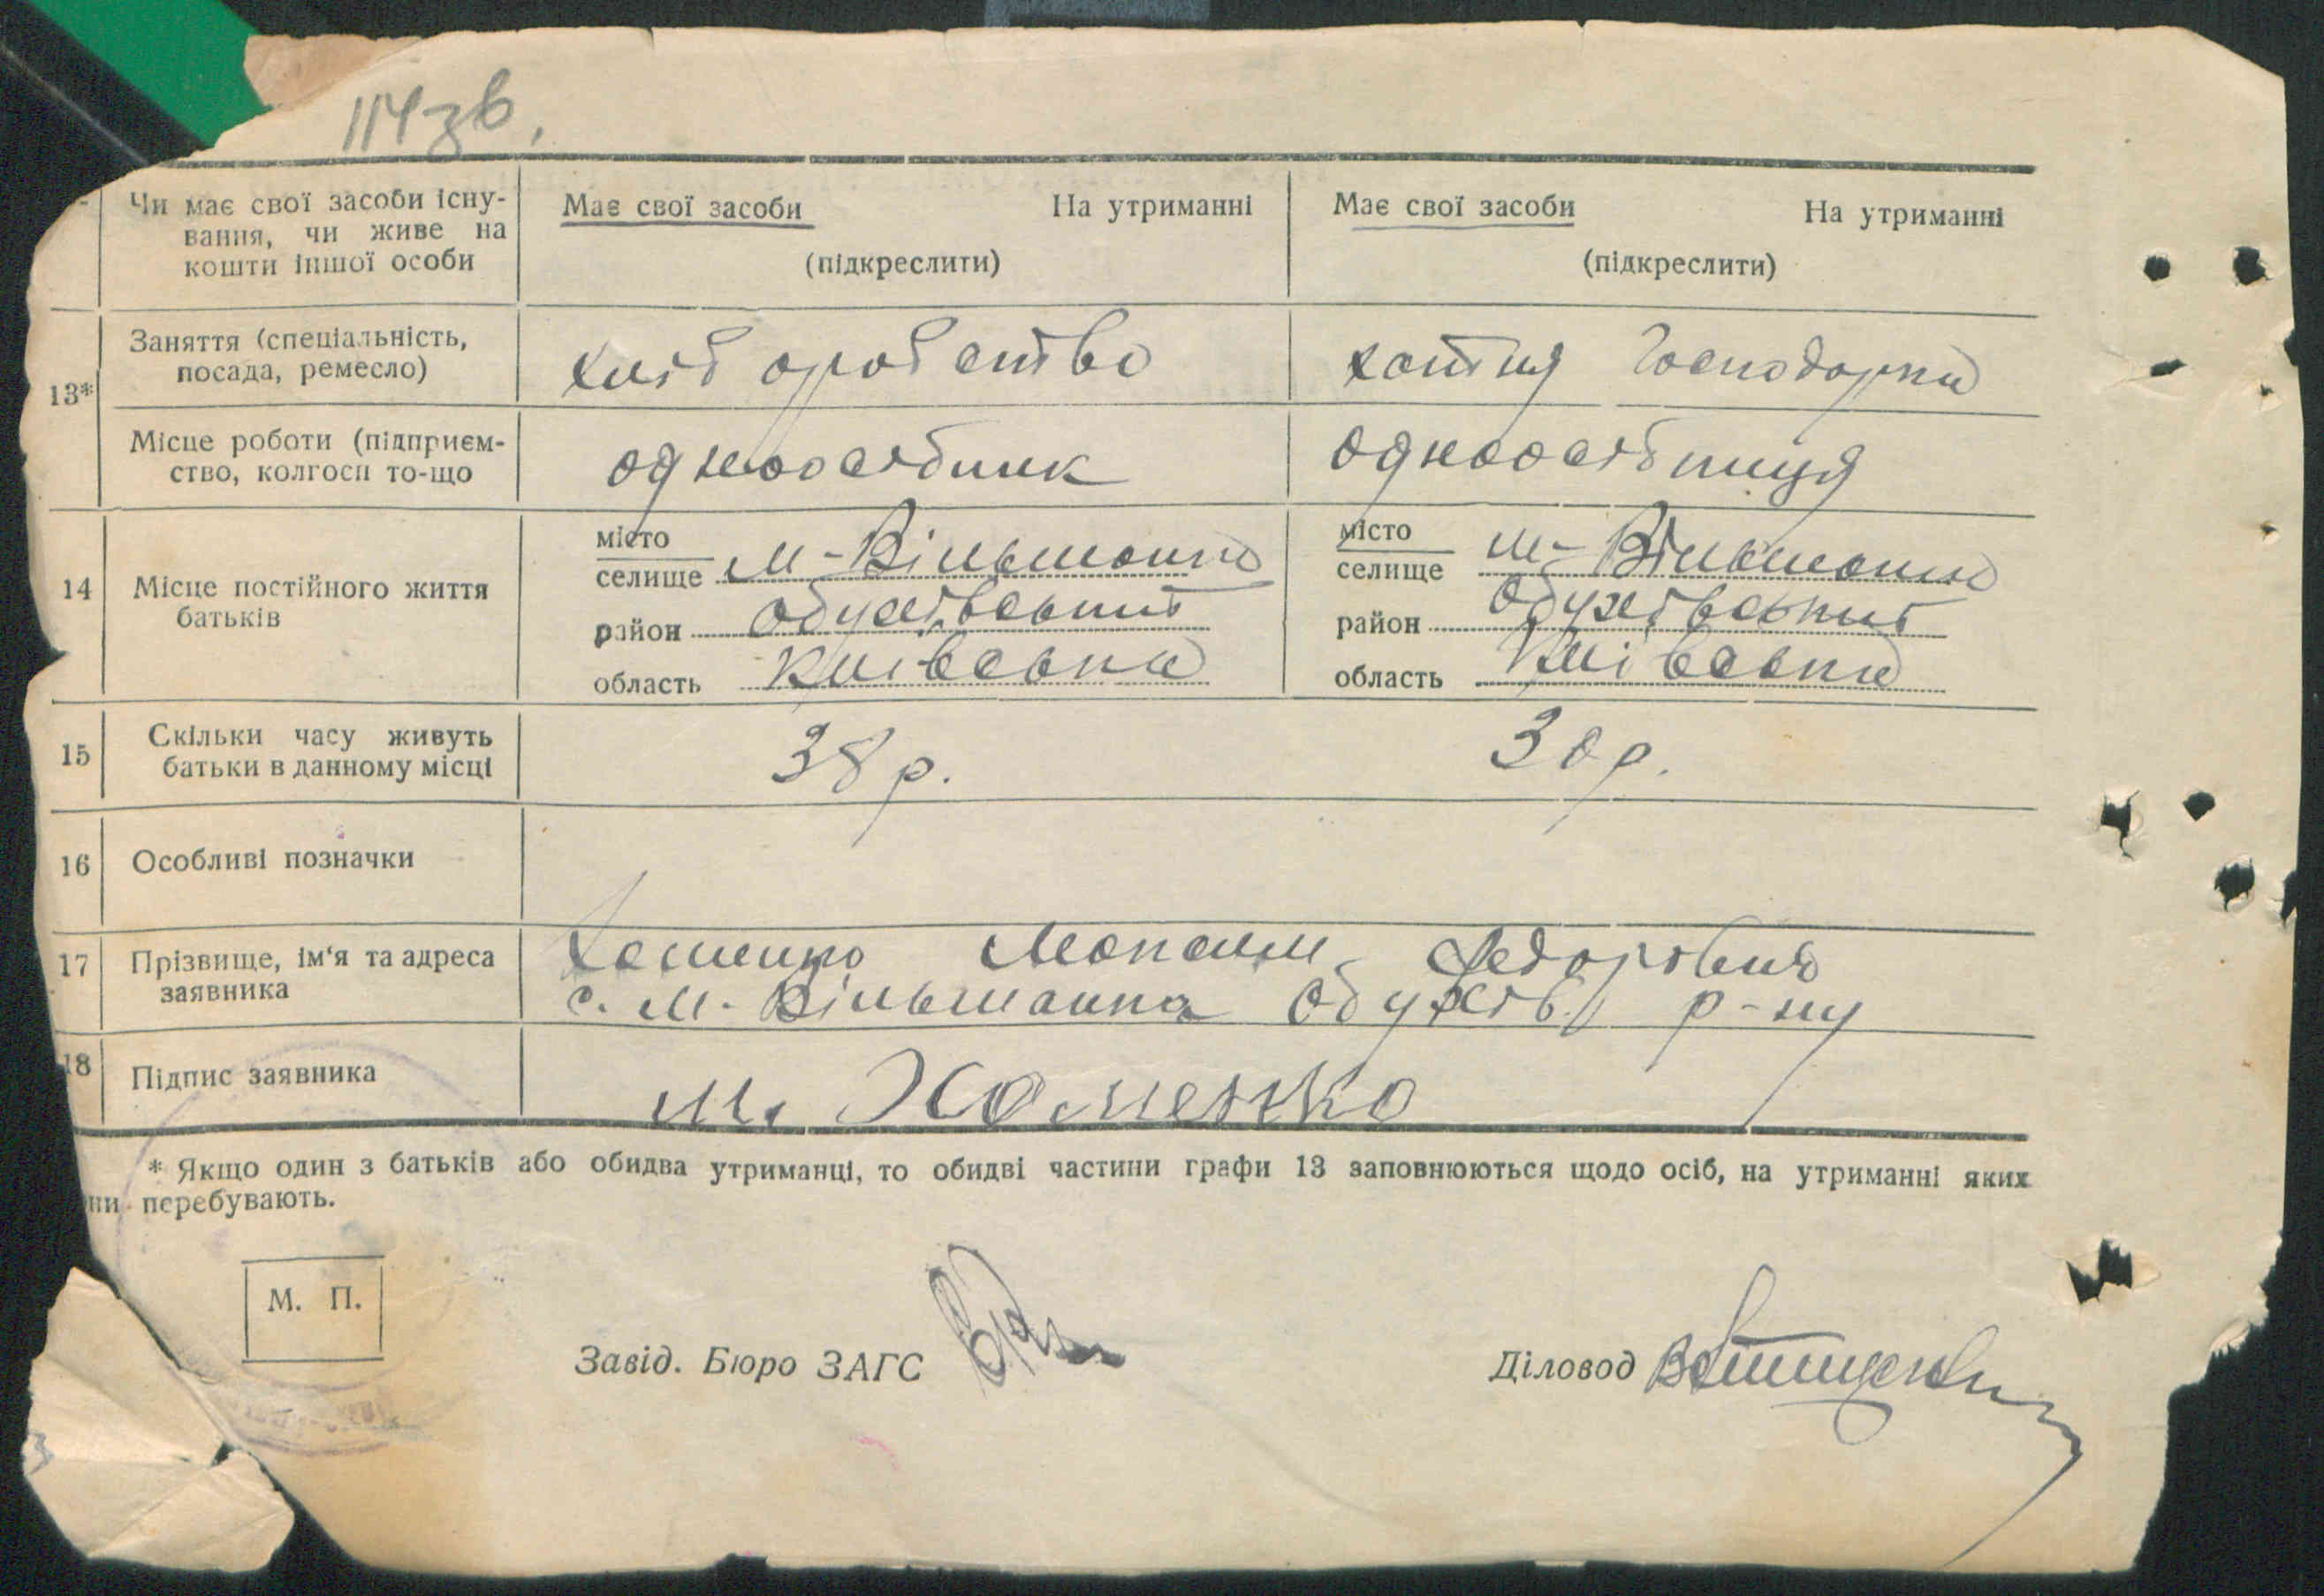 114зв.
Чи має свої засоби існу- Має свої засоби На утриманні Має свої засоби На утриманні
вання, чи живе на
кошти іншої особи (підкреслити) (підкреслити)
13* Заняття (спеціальність,
посада, ремесло) хліборобство хатня господарка
Місце роботи (підприєм-
ство, колгосп то-що одноосібник одноосібниця
14 Місце постійного життя
батьків
місто
селище М-Вільшанка
район Обухівський
область Київська
місто
селище М-Вільшанка
район Обухівський
область Київська
15 Скільки часу живуть
батьки в данному місці 38 р. 30 р.
16 Особливі позначки
17 Прізвище, ім‘я та адреса
заявника
Хоменко Федорович
с. М. Вільшанка Обухів. р-ну
18 Підпис заявника М. Хоменко
* Якщо один з батьків або обидва утриманці, то обидві частини графи 13 заповнюються щодо осіб, на утриманні яких
ни перебувають.
М. П.
Завід. Бюро ЗАГС
Діловод